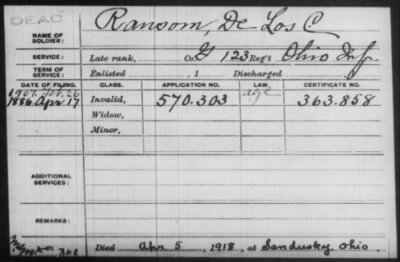 DEAD
NAME OF SOLDIER: Ransom, De Los C
SERVICE: Late rank, Co. G 123 Reg't Ohio Inf.
TERM OF SERVICE: Enlisted , 1 Discharged
DATE OF FILING. CLASS. APPLICATION NO. LAW. CERTIFICATE NO.
1907. Feb. 26 age
1886 Apr 17 Invalid, 570.303 363.858
Widow,
Minor,
ADDITIONAL SERVICES:
REMARKS:
Died Apr. 5, 1918, at Sandusky, Ohio.